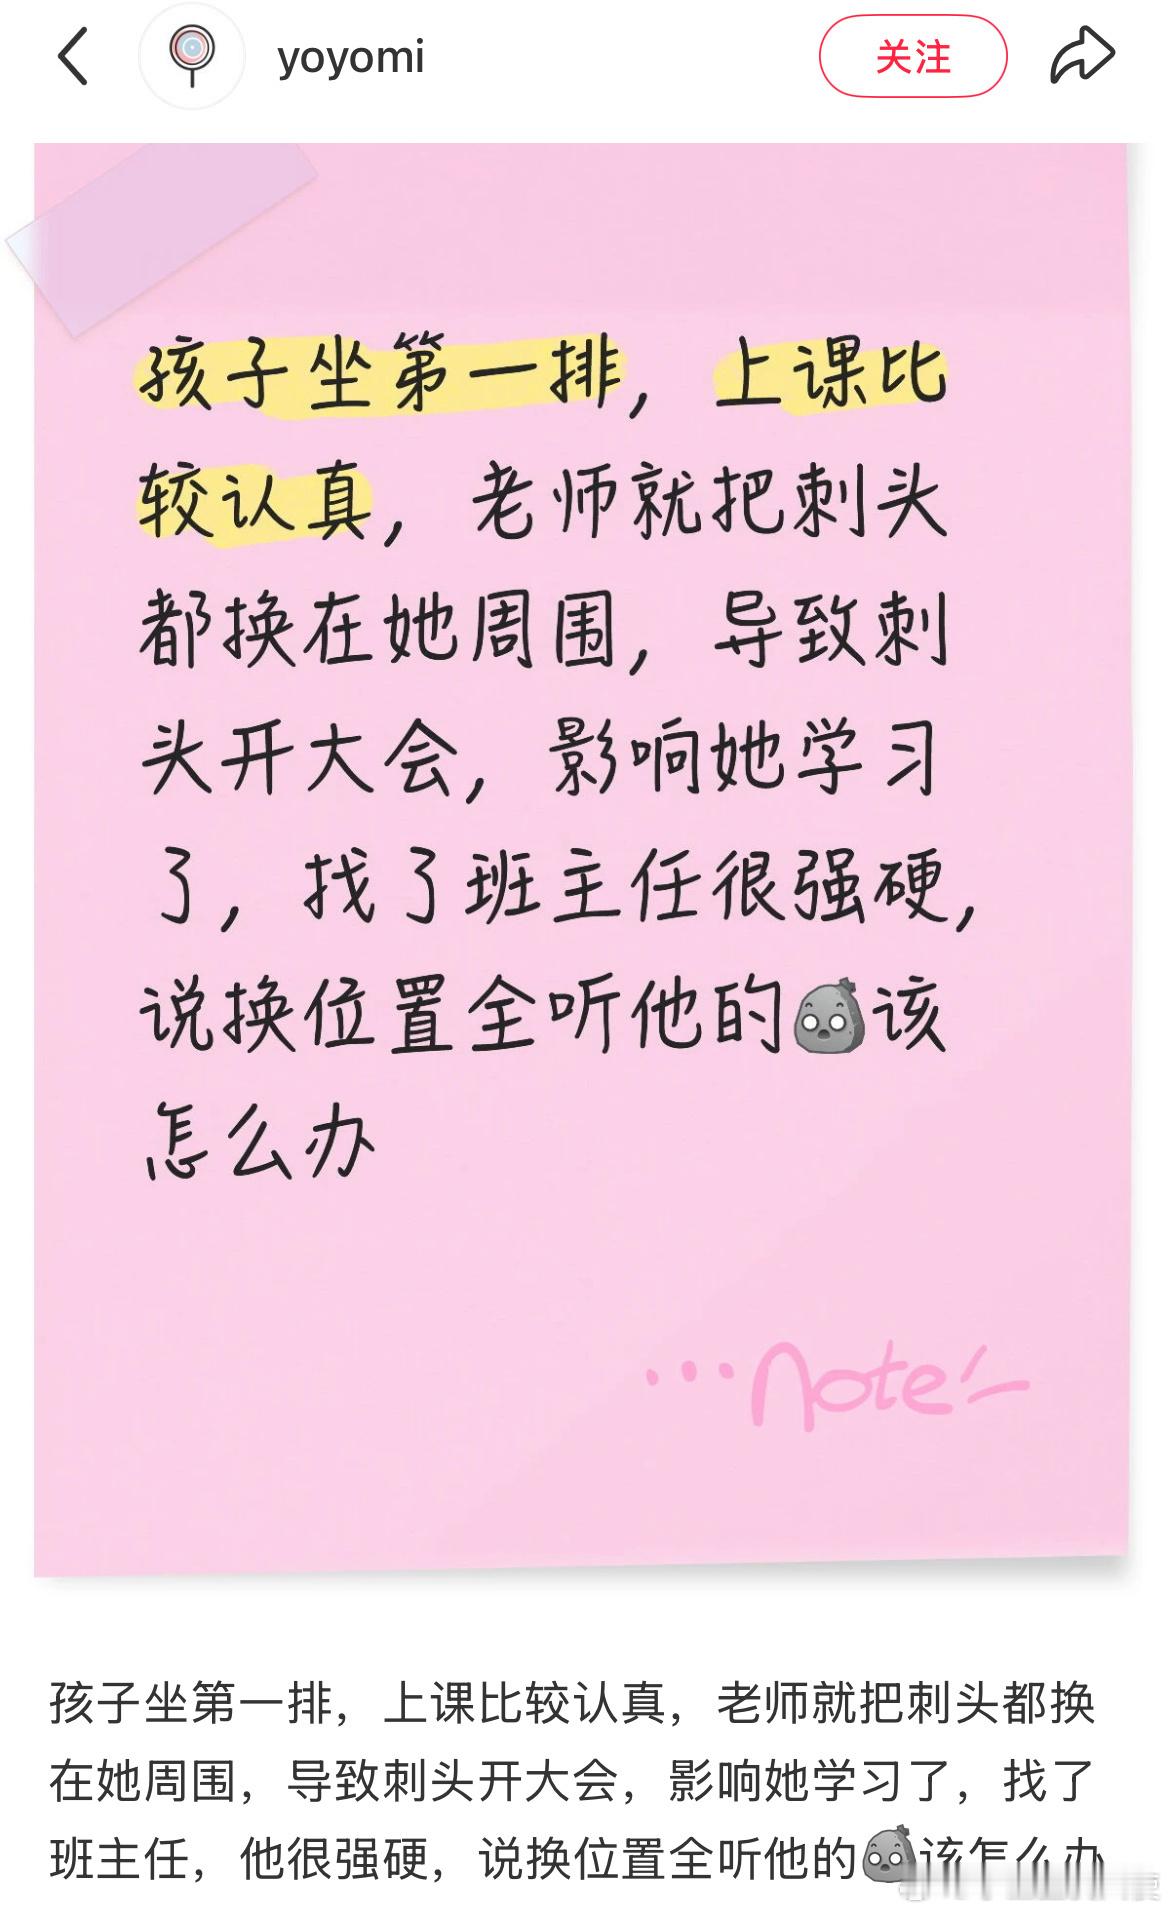 yoyomi
关注
孩子坐第一排，上课比
较认真，老师就把刺头
都换在她周围，导致刺
头开大会，影响她学习
了，找了班主任很强硬，
说换位置全听他的该
怎么办
...note
孩子坐第一排，上课比较认真，老师就把刺头都换
在她周围，导致刺头开大会，影响她学习了，找了
班主任，他很强硬，说换位置全听他的该怎么办